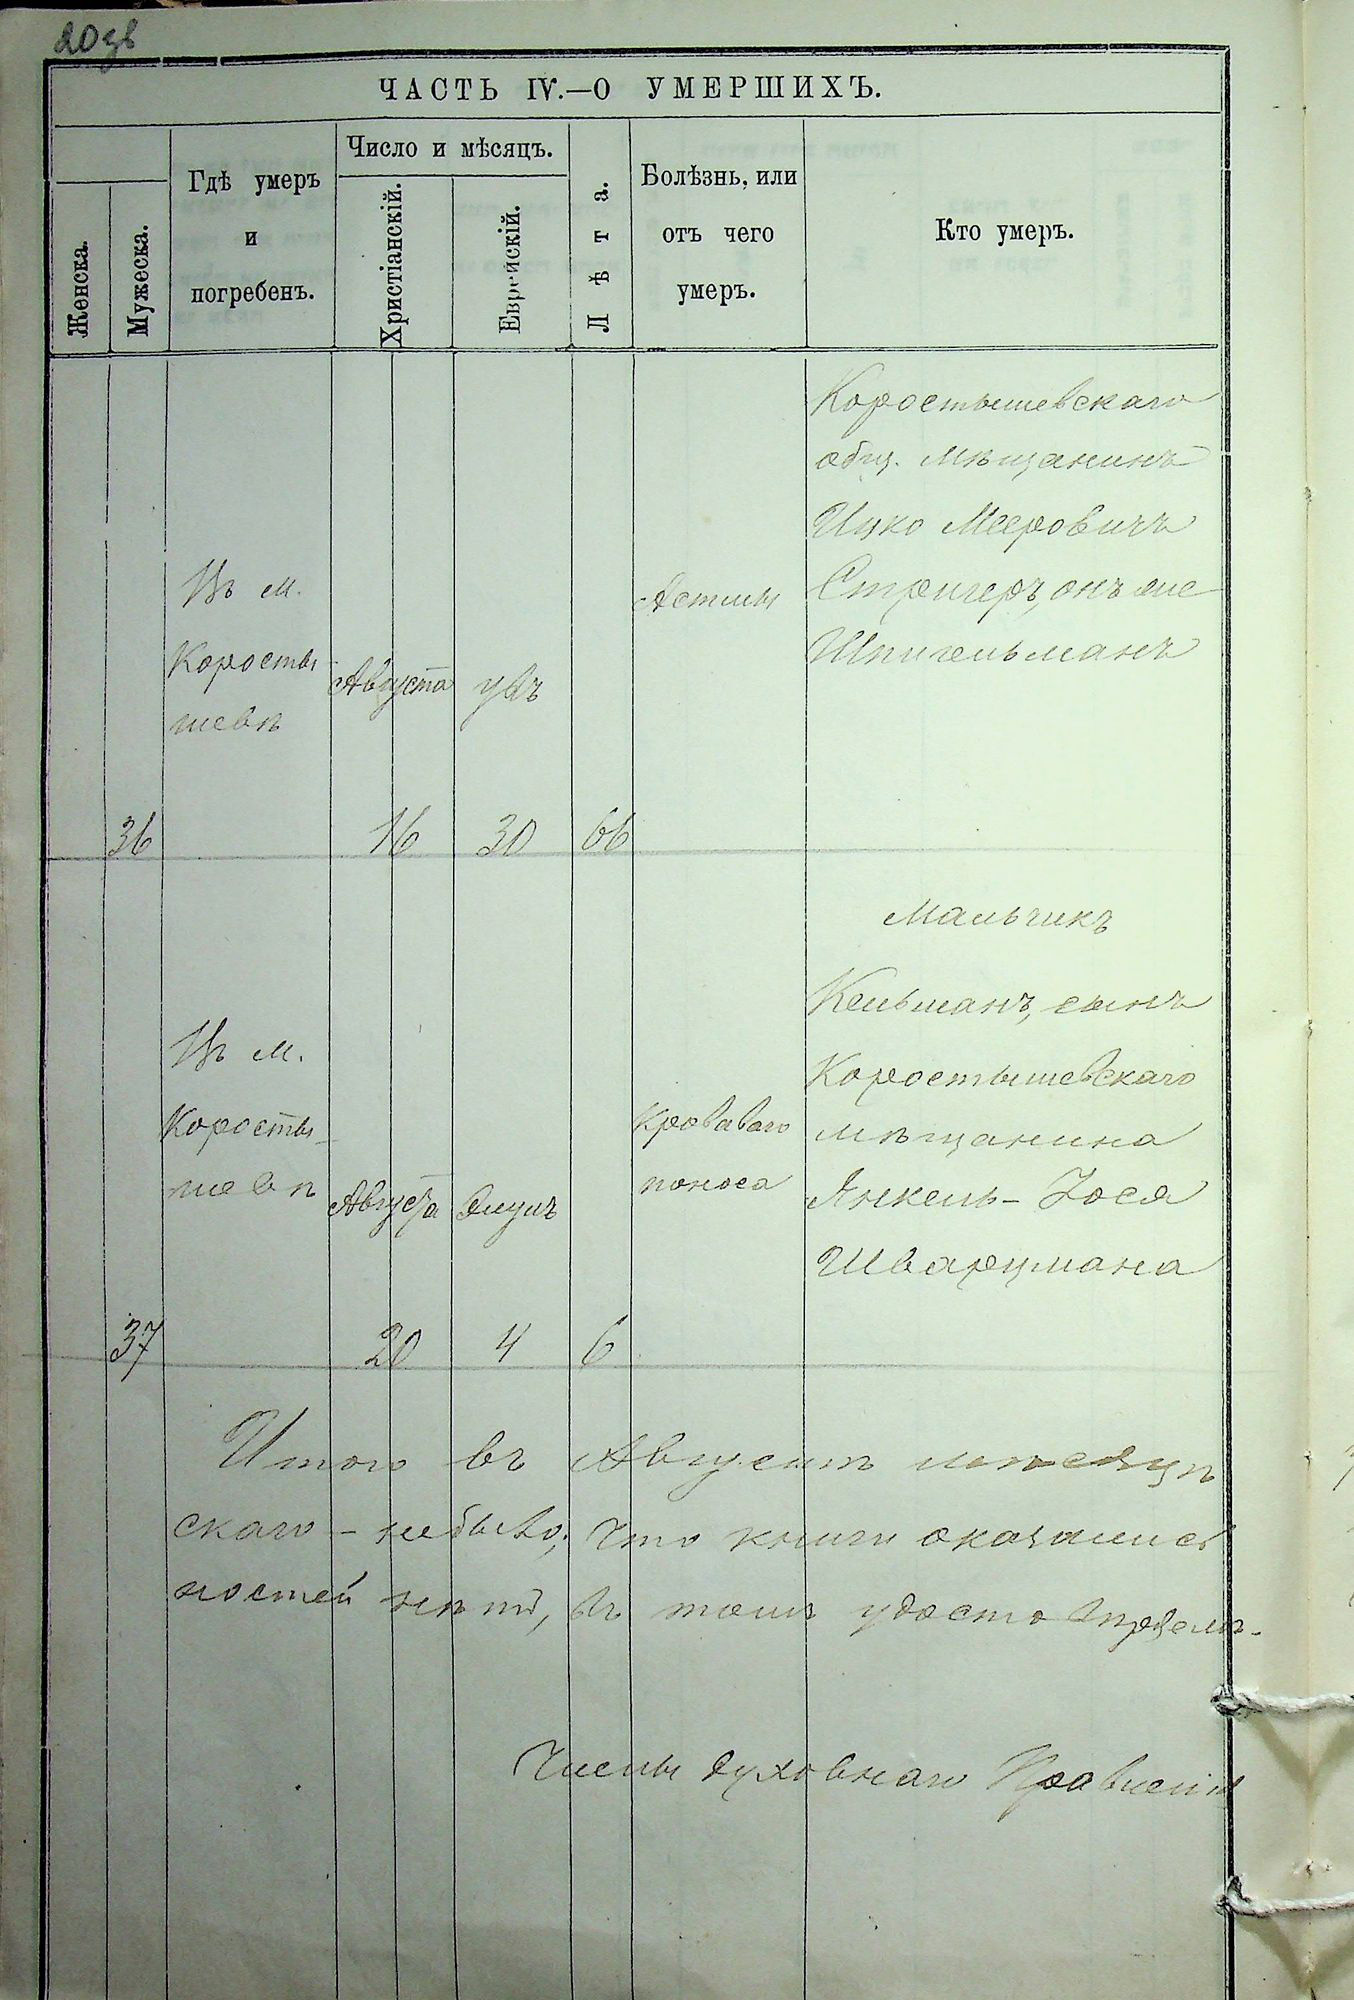 20 зв
ЧАСТЬ IV.—О УМЕРШИХЪ.
Женска.
Мужеска.
Гдѣ умеръ
и
погребенъ.
Число и мѣсяцъ.
Христіанскій.
Еврейскій.
Лѣта.
Болѣзнь, или
отъ чего
умеръ.
Кто умеръ.
36
Въ м.
Коросты-
шевѣ
Августа
16
увъ
30
66
Астмы
Коростышевскаго
общ. мѣщанинъ
Ицко Мееровичъ
Стригеръ, онъ же
Шпигельманъ
37
Въ м.
Коросты-
шевѣ
Августа
20
Элулъ
4
6
Кроваваго
поноса
Мальчикъ
Кельманъ, сынъ
Коростышевскаго
мѣщанина
Янкель-Іося
Шварцмана
Итого въ Августѣ мѣсяцѣ
скаго - небыло; что книги оказались
ностей нѣтъ, въ томъ удостовѣряемъ.
Члены духовнаго Правленія